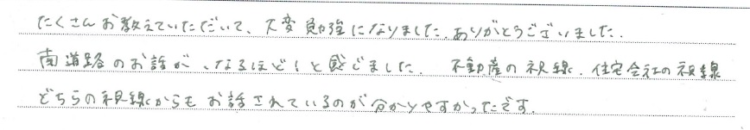 たくさんお教えていただいて、大変勉強になりました。ありがとうございました。
南道路のお話が、なるほど!と感じました。 不動産の視線、住宅会社の視線
どちらの視線からもお話されているのが分かりやすかったです。